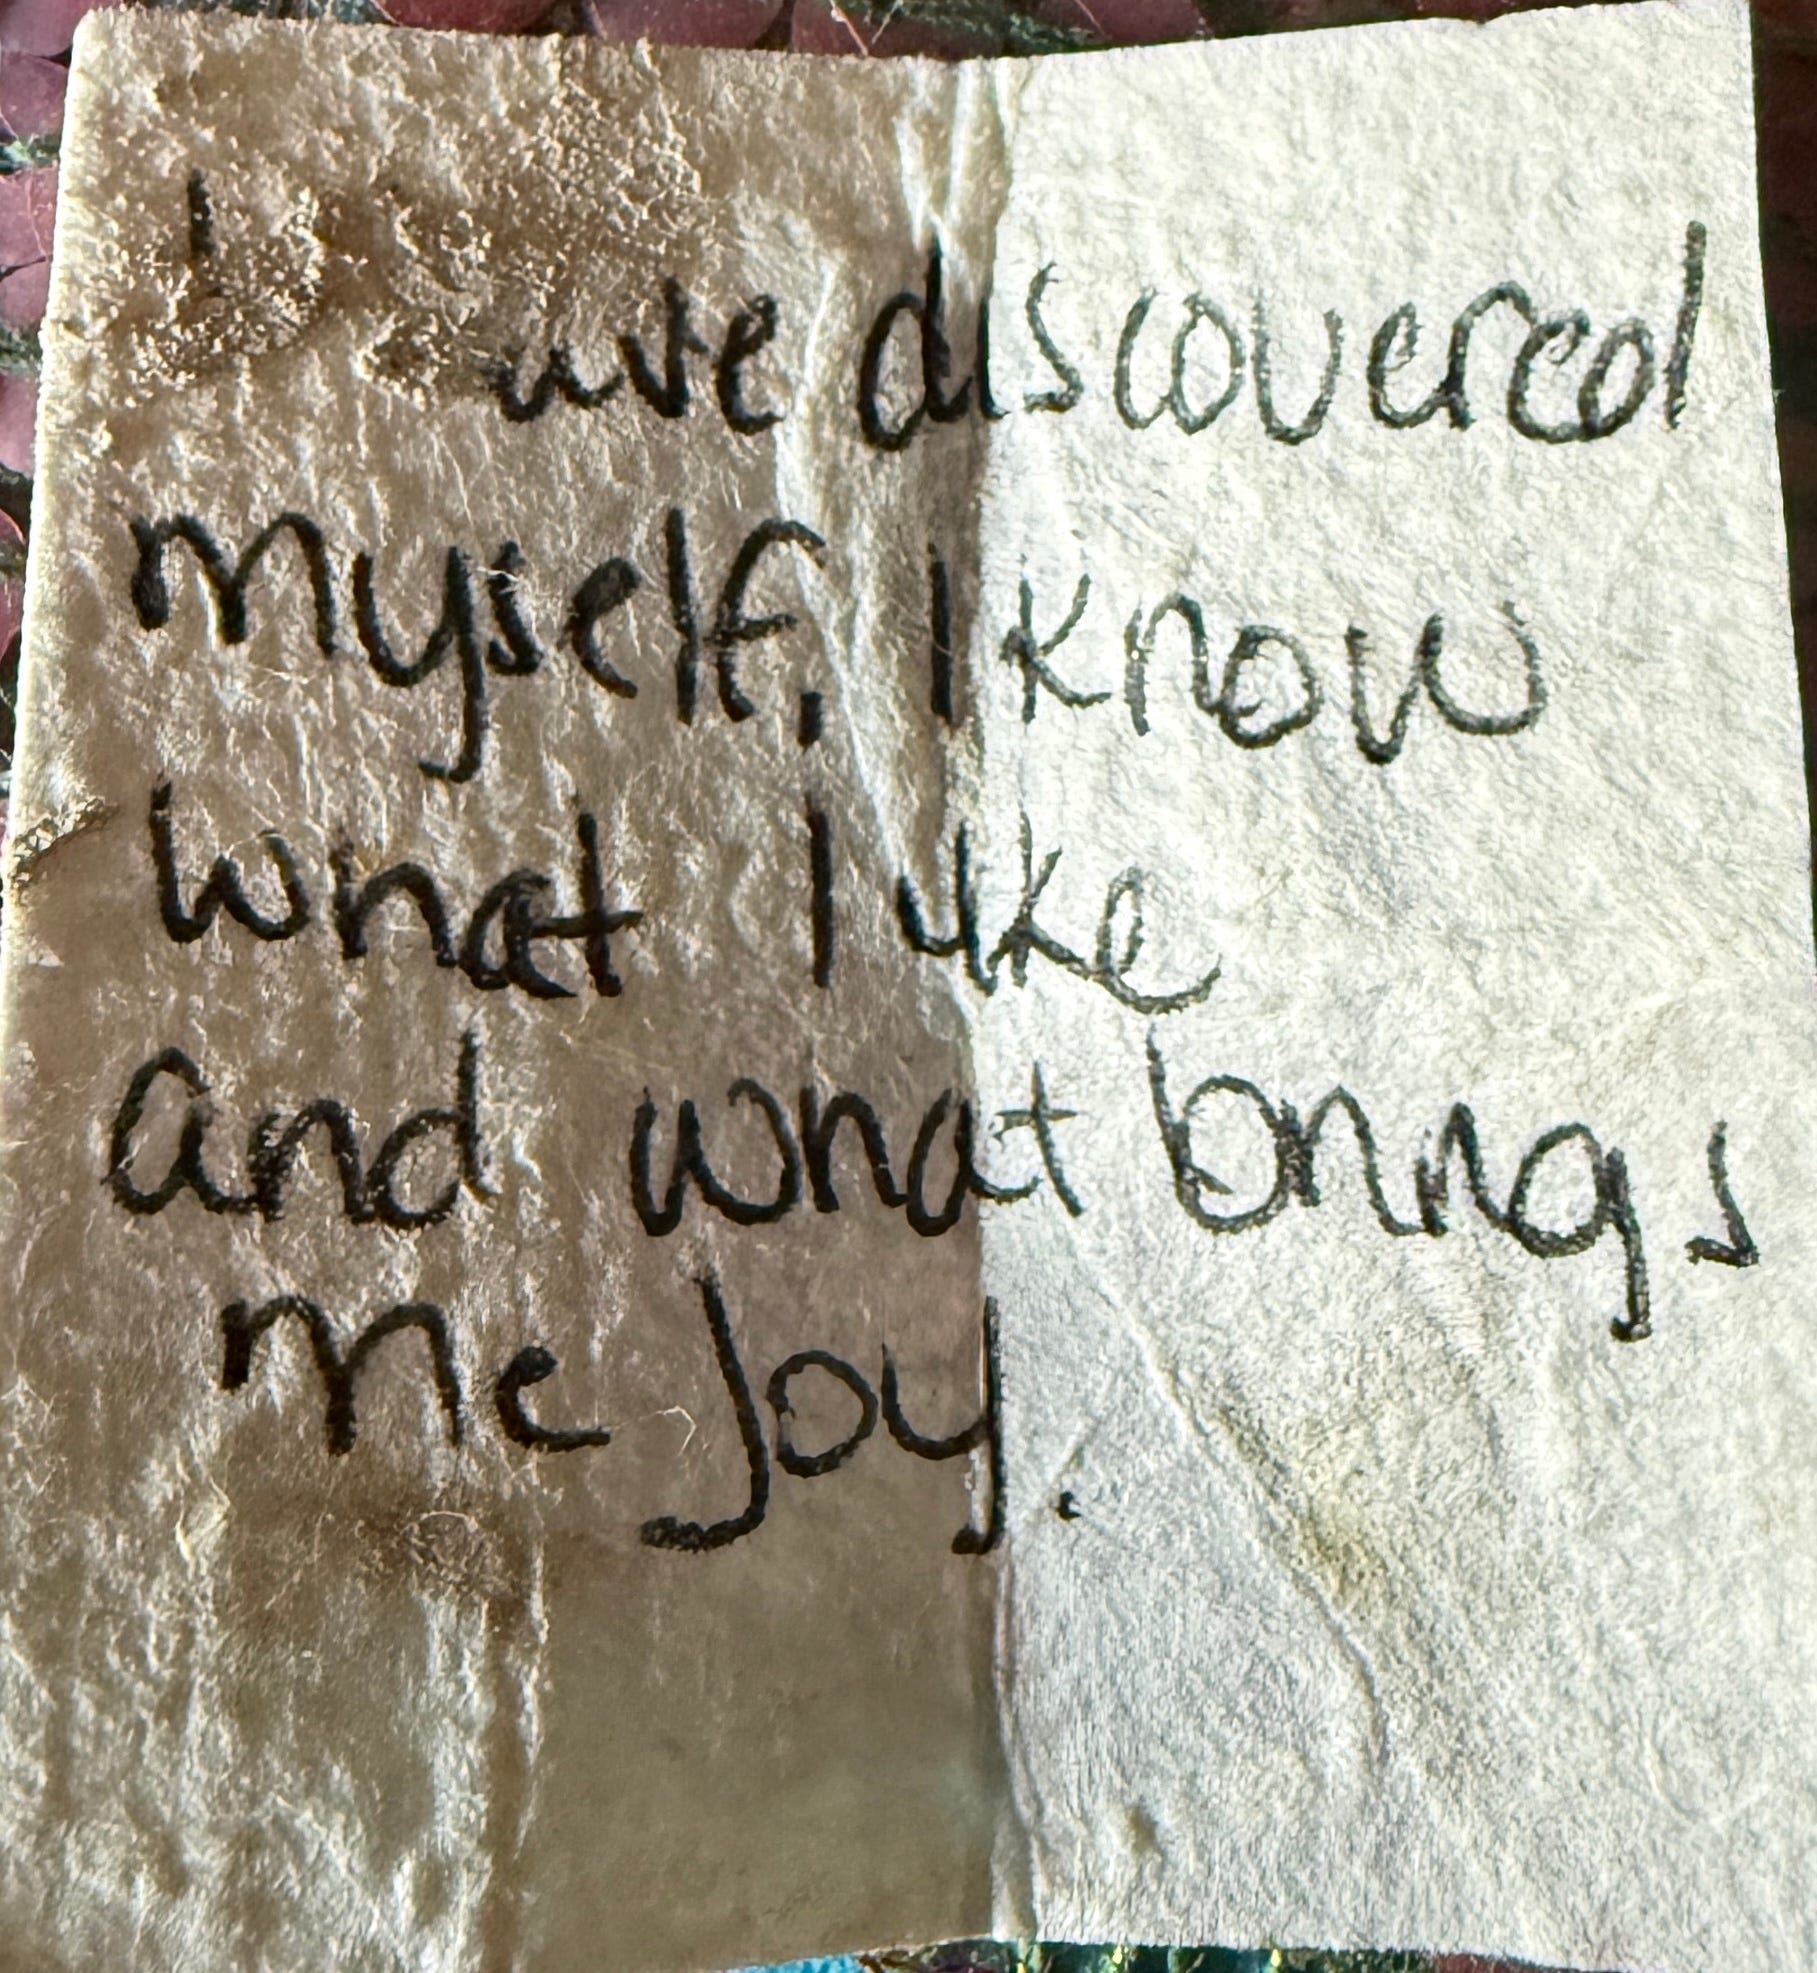 I have discovered
myself, I know
what I like
and what brings
me joy.